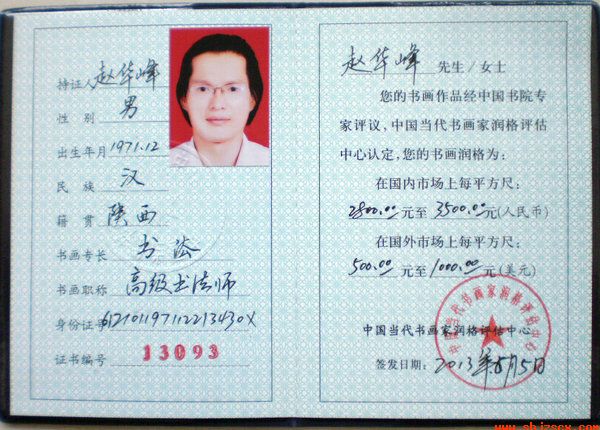 持证人 赵华峰
性别 男
出生年月 1971.12
民族 汉
籍贯 陕西
书画专长 书法
书画职称 高级书法师
身份证号 612101197112213430X
证书编号 13093
赵华峰 先生/女士
您的书画作品经中国书院专
家评议,中国当代书画家润格评估
中心认定,您的书画润格为:
在国内市场上每平方尺:
2800.00 元至 3500.00 元(人民币)
在国外市场上每平方尺:
500.00 元至 1000.00 元(美元)
中国当代书画家润格评估中心
中国当代书画家润格评估中心
签发日期: 2013年8月5日